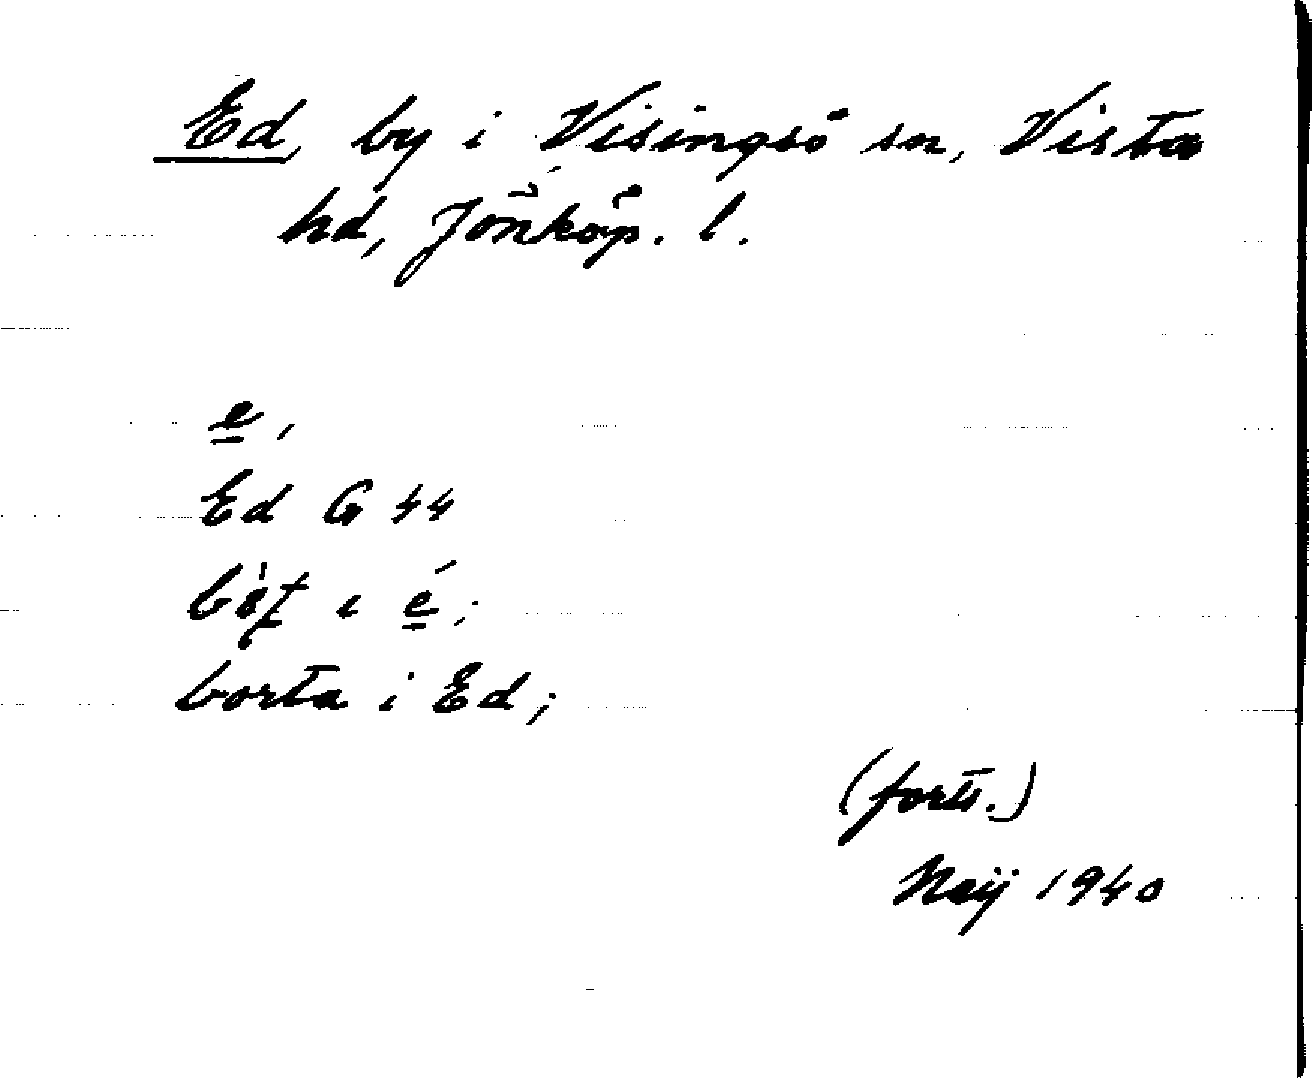 Ed, by i Visingsö sn, Vista
hd, Jönköp. l.
e,
Ed G 44
i é;
borta i Ed;
(forts.)
Neij 1940